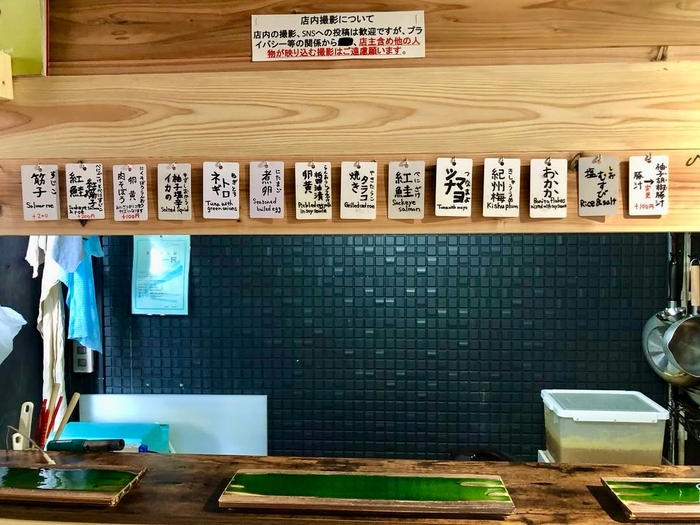 店内撮影について
店内の撮影、SNSへの投稿は歓迎ですが、プラ
イバシー等の関係から、店主含め他の人
物が映り込む撮影はご遠慮願います。
すじこ
筋子
Salmon roe
+200
紅鮭
筋子
Sockeye
& roe
+200円
卵黄
肉そぼろ
+100円
柚子塩辛
イカの
Salted squid
ねぎとろ
トロ
ネギ
Tuna with
green onions
にたまご
煮卵
Seasoned
boiled egg
卵黄
醤油漬
Pickled egg yolk
in soy sauce
やきたらこ
焼き
タラコ
Grilled cod roe
べにざけ
紅鮭
Sockeye
salmon
つなまよ
ツナ
マヨ
Tuna with mayo
きしゅううめ
紀州梅
Kishu plum
おかか
Bonito flakes
mixed with soy sauce
しお
塩
むすび
Rice & salt
柚子胡椒豚汁
変更
+100円
豚汁